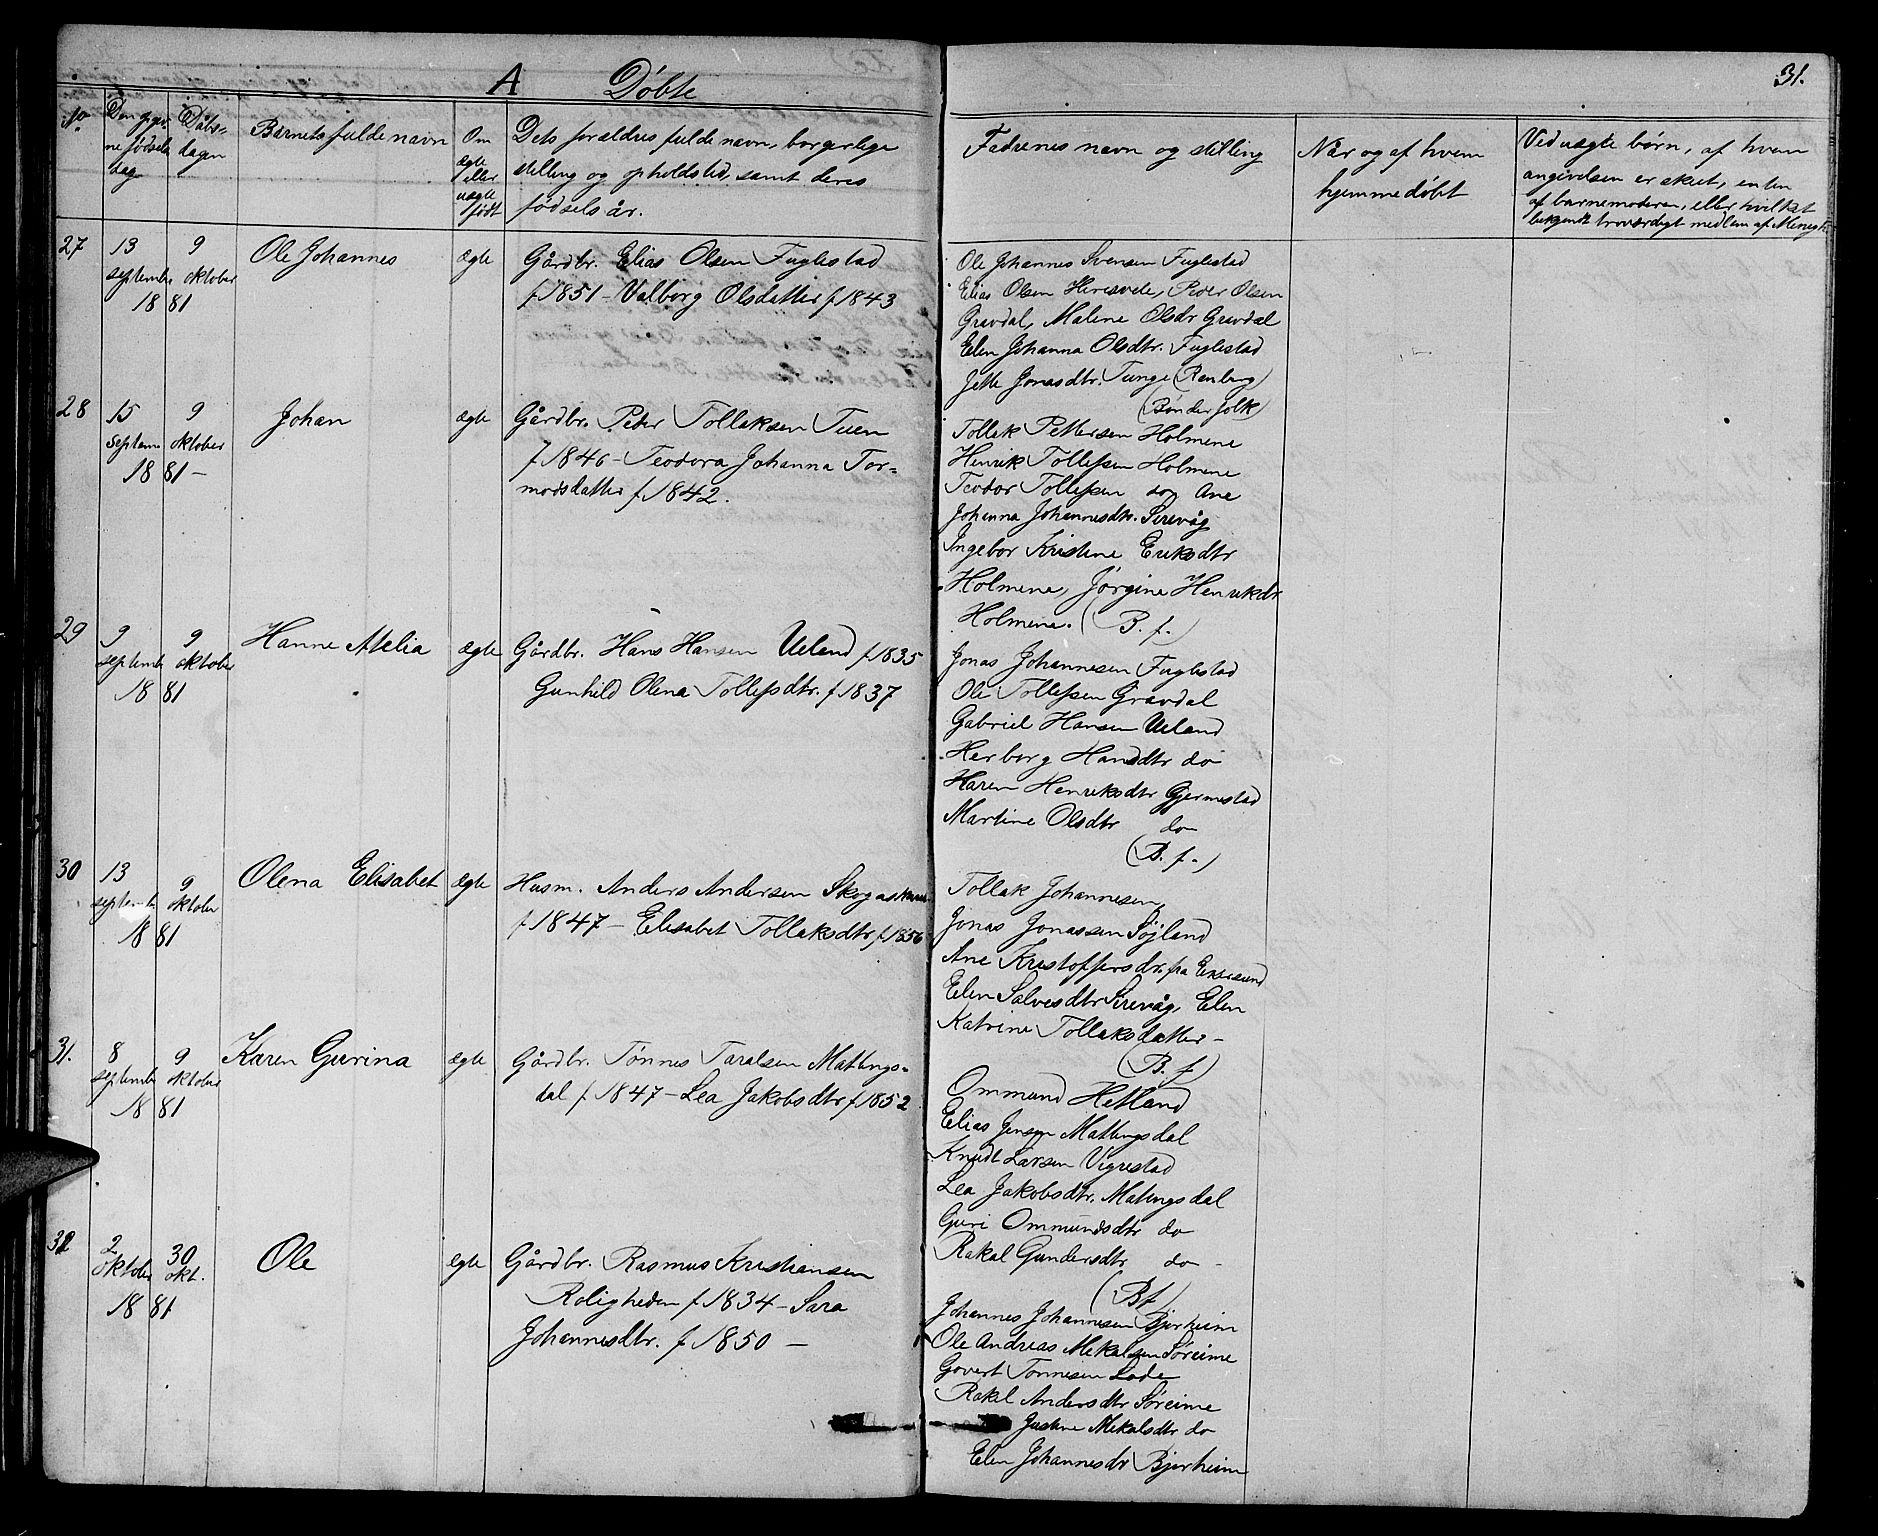 A Døbte
31.
No
Den given
ne fødsels
dag
Dåbs-
dagen
Barnets fulde navn
Om
ægte
eller
uægte
født
Dets forældres fulde navn, borgerlige
stilling og opholdsted, samt deres
fødselsår.
Fadrenes navn og stilling
Når og af hvem
hjemmedøbt
Ved uægte børn, af hvem
angivelsen er skeet, enten
af barnemoderen, eller hvilket
bekjendt troværdigt medlem af Menigh.
27
13
september
9
oktober
1881
Ole Johannes
ægte
Gårdbr. Elias Olsen Fuglestad
f 1851 - Valborg Olsdatter f 1843
Ole Johannes Svensen Fuglestad
Elias Olsen, Peder Olsen
Gravdal, Malene Olsdr Gravdal
Elen Johanna Olsdtr. Fuglestad
Jette Jonasdtr. Tunge
(Bønderfolk)
28
15
septem
9
oktober
1881 -
Johan
ægte
Gårdbr. Peter Tollaksen Tuen
f 1846 - Teodora Johanna Tor-
modsdatter f 1842.
Tollak Pettersen Holmene
Henrik Tollefsen Holmene
Teodor Tollefsen do Ane
Johanna Johannesdtr. Sirevåg
Ingebor Kristine Eriksdtr
Holmene, Jørgine Henrikdr
Holmene. (B. f.)
29
9
septembe
9
oktober
1881
Hanne Atelia
ægte
Gårdbr. Hans Hansen Ueland f 1835
Gunhild Olena Tollefsdtr. f 1837
Jonas Johannesen Fuglestad
Ole Tollefsen Gravdal
Gabriel Hansen Ueland
Herborg Hansdtr do
Karen Henriksdtr Gjermestad
Martine Olsdtr do
(B. f.)
30
13
septembe
9
oktober
1881
Olena Elisabet
ægte
Husm. Anders Andersen
f 1847 - Elisabet Tollaksdtr f 1856
Tollak Johannesen,
Jonas Jonassen Søjland
Ane Kristoffersdr. fra Ekersund
Elen Salvesdtr Sirevåg, Elen
Katrine Tollaksdatter -
(B. f)
31.
8
septembe
9
oktober
1881
Karen Gurina
ægte
Gårdbr. Tønnes Taralsen Mattings-
dal f 1847 - Lea Jakobsdtr f 1852
Ommund Hetland
Elias Jensen Mattingsdal
Knudt Larsen Vigrestad
Lea Jakobsdtr. Matingsdal
Guri Ommundsdtr do
Rakal Gundersdtr do -
(B f)
32
2
oktober
30
okt.
1881
Ole
ægte
Gårdbr. Rasmus Kristiansen
Roligheden f 1834 - Sara
Johannesdtr. f 1850 -
Johannes Johannesen Bjorheim
Ole Andreas Mekalsen Søreime
Govert Tønnesen Lode
Rakel Andersdtr Søreime
Justine Mekalsdtr do
Elen Johannesdr Bjorheim